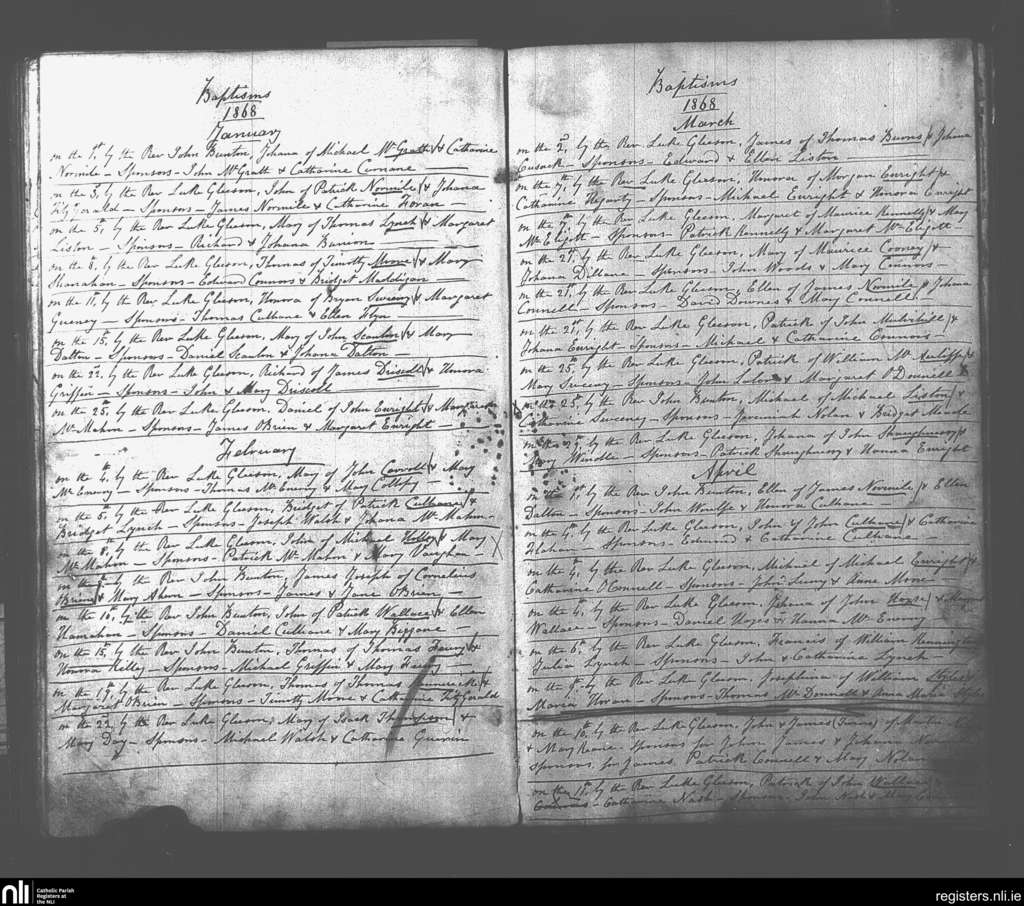 Baptisms
1868
January
on the 1st, by the Rev John Bunton, Johana of Michael McGrath & Catharine
Normile - Sponsors - John McGrath & Catharine
on the 3, by the Rev Luke Gleeson, John of Patrick Normile & Johana
Fitzgerald - Sponsors - James Normile & Catharine Horan -
on the 5, by the Rev Luke Gleeson, Mary of Thomas Lynch & Margaret
Liston - Sponsors - Richard & Johana
on the 8, by the Rev Luke Gleeson, Thomas of Timothy Moore & Mary
Shanahan - Sponsors - Edward Connors & Bridget Maddigan
on the 11, by the Rev Luke Gleeson, Honora of Bryan Sweeny & Margaret
Guerney - Sponsors - Thomas Culhane & Ellen
on the 15, by the Rev Luke Gleeson, Mary of John Scanlon & Mary
Dalton - Sponsors - Daniel Scanlon & Johana Dalton -
on the 22, by the Rev Luke Gleeson, Richard of James Driscoll & Honora
Griffin - Sponsors - John & Mary Driscoll
on the 25, by the Rev Luke Gleeson, Daniel of John Enright & Margaret
McMahon - Sponsors - James O'Brien & Margaret Enright -
February
on the 4, by the Rev Luke Gleeson, Mary of John Carroll & Mary
McEnery - Sponsors - Thomas McEnery & Mary
on the 5, by the Rev Luke Gleeson, Bridget of Patrick Culhane &
Bridget Lynch - Sponsors - Joseph Walsh & Johana McMahon
on the 8, by the Rev Luke Gleeson, John of Michael & Mary
McMahon - Sponsors - Patrick McMahon & Mary Vaughan -
on the by the Rev John Bunton, James Joseph of Cornelius
Brien & Mary Ahern - Sponsors - James & Jane O'Brien -
on the 10, by the Rev John Bunton, John of Patrick Wallace & Ellen
Hanrahan - Sponsors - Daniel Culhane & Mary
on the 15, by the Rev John Bunton, Thomas of Thomas &
Honora Kelly - Sponsors - Michael Griffin & Mary
on the 19, by the Rev Luke Gleeson, Thomas of Thomas &
Margaret O'Brien - Sponsors - Timothy Moore & Catharine Fitzgerald
on the 22, by the Rev Luke Gleeson, Mary of Isaack Thompson &
Mary Day - Sponsors - Michael Walsh & Catharine Guerin
Baptisms
1868
March
on the 2, by the Rev Luke Gleeson, James of Thomas Burns & Johana
Cusack - Sponsors - Edward & Ellen Liston -
on the 7, by the Rev Luke Gleeson, Honora of Morgan Enright &
Catharine Hegarty - Sponsors - Michael Enright & Honora Enright
on the 7, by the Rev Luke Gleeson, Margaret of Maurice Kennelly & Mary
McEligott - Sponsors - Patrick Kennelly & Margaret McEligott -
on the 21, by the Rev Luke Gleeson, Mary of Maurice Cooney &
Johana Dillane - Sponsors - John Woods & Mary Connors -
on the 21, by the Rev Luke Gleeson, Ellen of James Normile & Johana
Connell - Sponsors - David Downes & Mary Connell -
on the 21, by the Rev Luke Gleeson, Patrick of John Mulvihill &
Johana Enright - Sponsors - Michael & Catharine Connors -
on the 25, by the Rev Luke Gleeson, Patrick of William McAuliffe &
Mary Sweeny - Sponsors - John Lalor & Margaret O'Donnell
on the 25, by the Rev John Bunton, Michael of Michael Liston &
Catharine Sweeney - Sponsors - Jeremiah Nolan & Bridget
on the by the Rev Luke Gleeson, Johana of John Shaughnessy &
Mary Windle - Sponsors - Patrick Shaughnessy & Hanna Enright
April
on the 1, by the Rev John Bunton, Ellen of James Normile & Ellen
Dalton - Sponsors - John Woulfe & Honora Culhane -
on the 4, by the Rev Luke Gleeson, John of John Culhane & Catharine
- Sponsors - Edmund & Catharine Culhane -
on the 4, by the Rev Luke Gleeson, Michael of Michael Enright &
Catharine O'Connell - Sponsors - John & Anne Mone -
on the 4, by the Rev Luke Gleeson, Johana of John Hayes & Margaret
Wallace - Sponsors - Daniel Hayes & Hanna McEnery
on the 6, by the Rev Luke Gleeson, Francis of William Hennington
Julia Lynch - Sponsors - John & Catharine Lynch
on the 9, by the Rev Luke Gleeson, Josephina of William &
Maria Horan - Sponsors - Thomas McDonnell & Anna Maria
on the 10, by the Rev Luke Gleeson, John & James (Twins) of Martin
& Mary Keane - Sponsors for John, James & Johana
Sponsors for James, Patrick Connell & Mary Nolan
on the by the Rev Luke Gleeson, Patrick of John Wallace
Catharine Nash - Sponsors - John Nash &
nli
Catholic Parish
Registers at
the NLI
registers.nli.ie